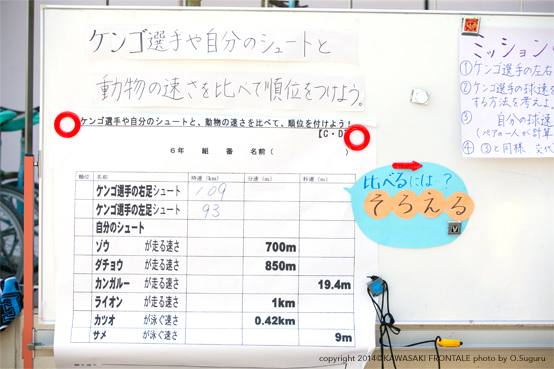 ケンゴ選手や自分のシュートと
動物の速さを比べて順位をつけよう。
ケンゴ選手や自分のシュートと、動物の速さを比べて、順位を付けよう！
【C・D】
6年 組 番 名前( )
順位 名前 時速(km) 分速(m) 秒速(m)
ケンゴ選手の右足シュート 109
ケンゴ選手の左足シュート 93
自分のシュート
ゾウ が走る速さ 700m
ダチョウ が走る速さ 850m
カンガルー が走る速さ 19.4m
ライオン が走る速さ 1km
カツオ が泳ぐ速さ 0.42km
サメ が泳ぐ速さ 9m
比べるには…?
そろえる
ミッション
①ケンゴ選手の左右
②ケンゴ選手の球速
する方法を考え
③ 自分の球速
(ペアの一人が計算
④ ③と同様 交代
copyright 2014©KAWASAKI FRONTALE photo by O.Suguru